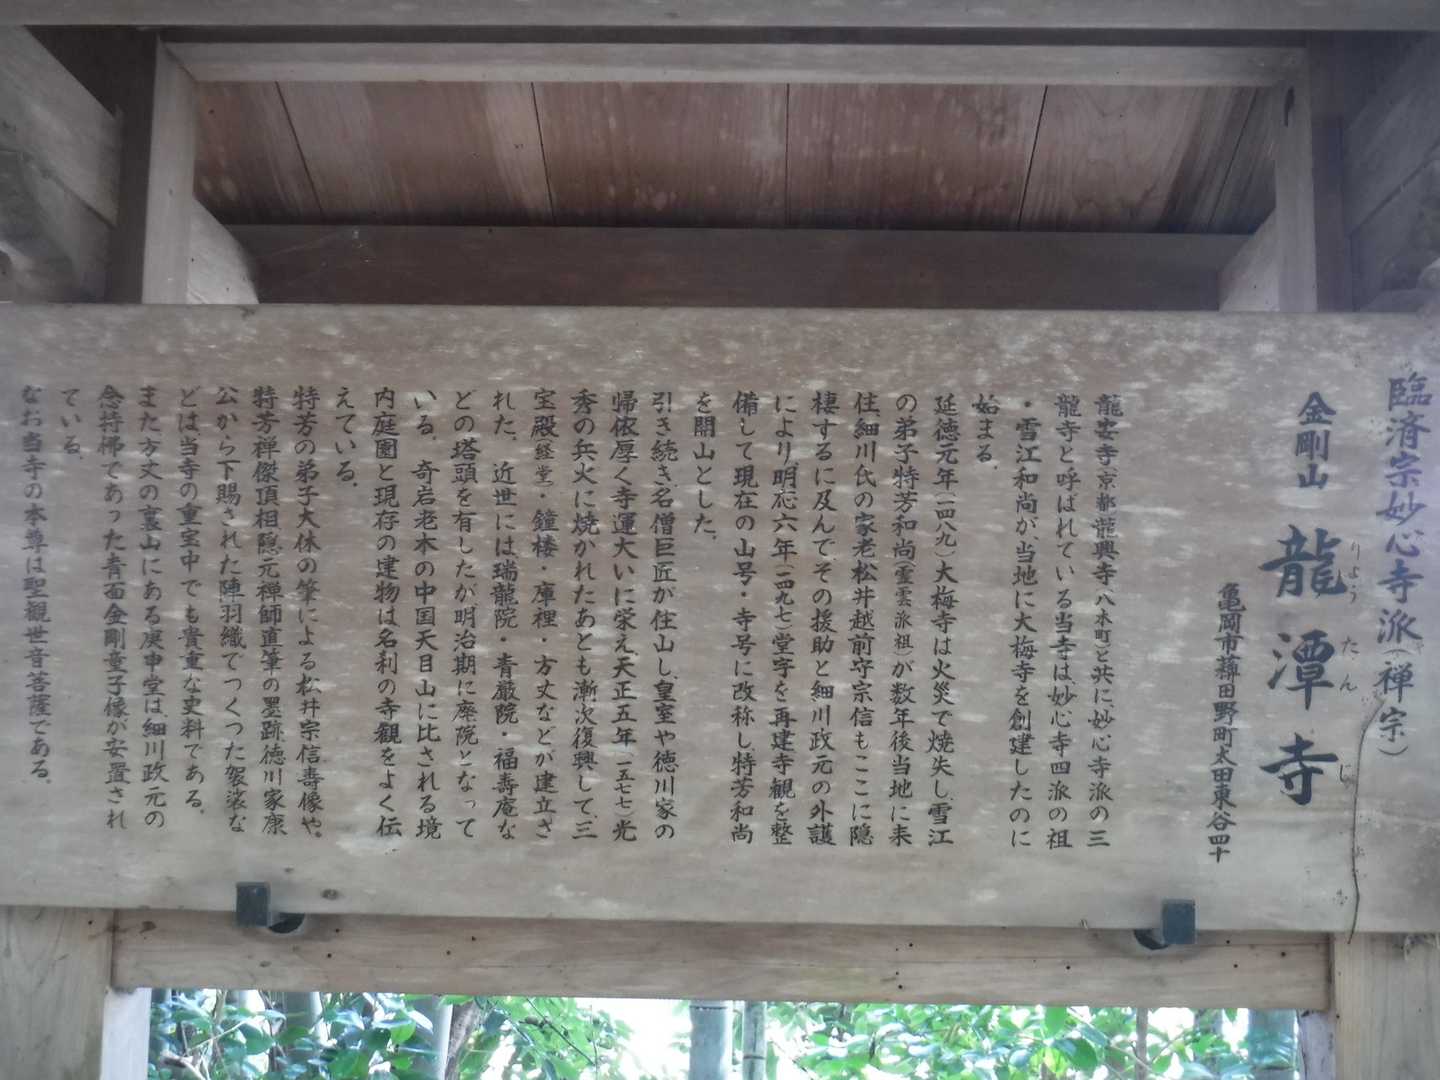 臨済宗妙心寺派(禅宗)
金剛山 龍潭寺
りょう たん じ
亀岡市薭田野町太田東谷四十
龍安寺(京都)龍興寺(八木町)と共に、妙心寺派の三
龍寺と呼ばれている当寺は、妙心寺四派の祖
・雪江和尚が、当地に大梅寺を創建したのに
始まる。
延徳元年(一四八九)大梅寺は火災で焼失し、雪江
の弟子特芳和尚(霊雲派祖)が数年後当地に来
住、細川氏の家老松井越前守宗信もここに隠
棲するに及んで、その援助と細川政元の外護
により、明応六年(一四九七)堂宇を再建寺観を整
備して現在の山号・寺号に改称し、特芳和尚
を開山とした。
引き続き、名僧巨匠が住山し、皇室や徳川家の
帰依厚く寺運大いに栄え、天正五年(一五七七)光
秀の兵火に焼かれたあとも漸次復興して、三
宝殿(経堂)・鐘楼・庫裡・方丈などが建立さ
れた。近世には瑞龍院・青巌院・福壽庵な
どの塔頭を有したが明治期に廃院となって
いる。奇岩老木の中国天目山に比される境
内庭園と現存の建物は名刹の寺観をよく伝
えている。
特芳の弟子大休の筆による松井宗信壽像や。
特芳禅傑頂相、隠元禅師直筆の墨跡、徳川家康
公から下賜された陣羽織でつくった袈裟な
どは当寺の重宝中でも貴重な史料である。
また方丈の裏山にある庚申堂は、細川政元の
念持佛であった青面金剛童子像が安置され
ている。
なお当寺の本尊は聖観世音菩薩である。